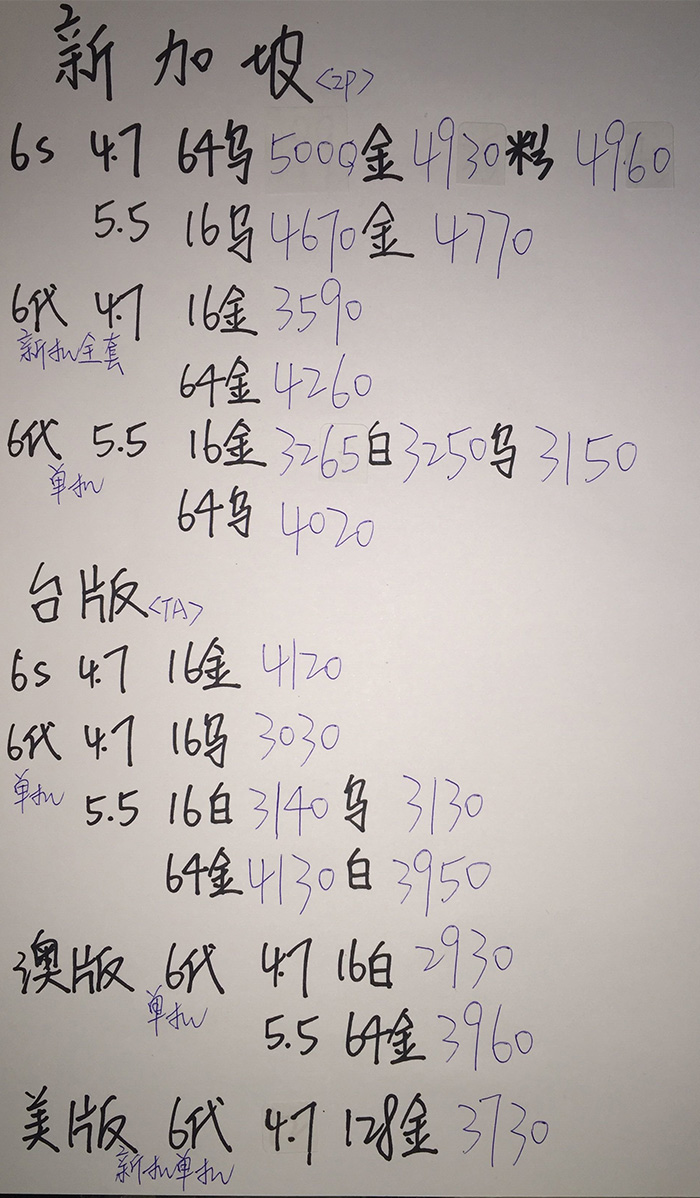 新加坡<ZP>
6s 4.7 64乌 5000 金 4930 粉 4960
5.5 16乌 4670 金 4770
6代 4.7 16金 3590
新机全套
64金 4260
6代 5.5 16金 3265 白 3250 乌 3150
单机
64乌 4020
台版<TA>
6s 4.7 16金 4120
6代 4.7 16乌 3030
单机
5.5 16白 3140 乌 3130
64金 4130 白 3950
澳版 6代 4.7 16白 2930
单机
5.5 64金 3960
美版 6代 4.7 128金 3730
新机单机